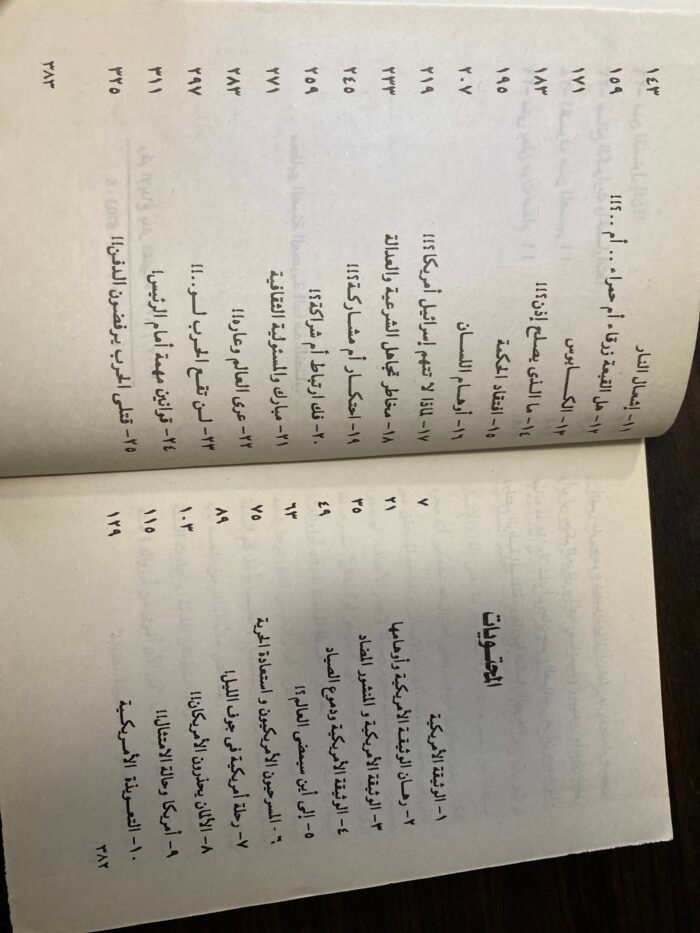 المحتويات
١- الوثيقة الأمريكية ٧
٢- رهان الوثيقة الأمريكية وأوهامها ٢١
٣- الوثيقة الأمريكية و المنشور المضاد ٣٥
٤- الوثيقة الأمريكية ودموع الصياد ٤٩
٥- إلى أين سيمضى العالم؟! ٦٣
٦- المسرحيون الأمريكيون و استعادة الحرية ٧٥
٧- رحلة أمريكية فى جوف الليل! ٨٩
٨- الألمان يحذرون الأمريكان!! ١٠٣
٩- أمريكا وحالة الامتثال!! ١١٥
١٠- التعويذة الأمريكية ١٢٩
٣٨٢
١١- إشعال النار ١٤٣
١٢- هل القبعة زرقاء أم حمراء .. أم ..؟!! ١٥٩
١٣- الكابوس ١٧١
١٤- ما الذى يصلح إذن؟!! ١٨٣
١٥- افتقاد الحكمة ١٩٥
١٦- أوهام اللسان ٢٠٧
١٧- لماذا لا تتهم إسرائيل أمريكا؟!! ٢١٩
١٨- مخاطر تجاهل الشرعية والعدالة ٢٣٣
١٩- احتكار أم مشاركة؟!! ٢٤٥
٢٠- فك ارتباط أم شراكة؟! ٢٥٩
٢١- مبارك والمسئولية الثقافية ٢٧١
٢٢- عرى العالم وعاره!! ٢٨٣
٢٣- لن تقع الحرب لو..!! ٢٩٧
٢٤- قوانين مهمة أمام الرئيس! ٣١١
٢٥- قتلى الحرب يرفضون الدفن!! ٣٢٥
٣٨٣